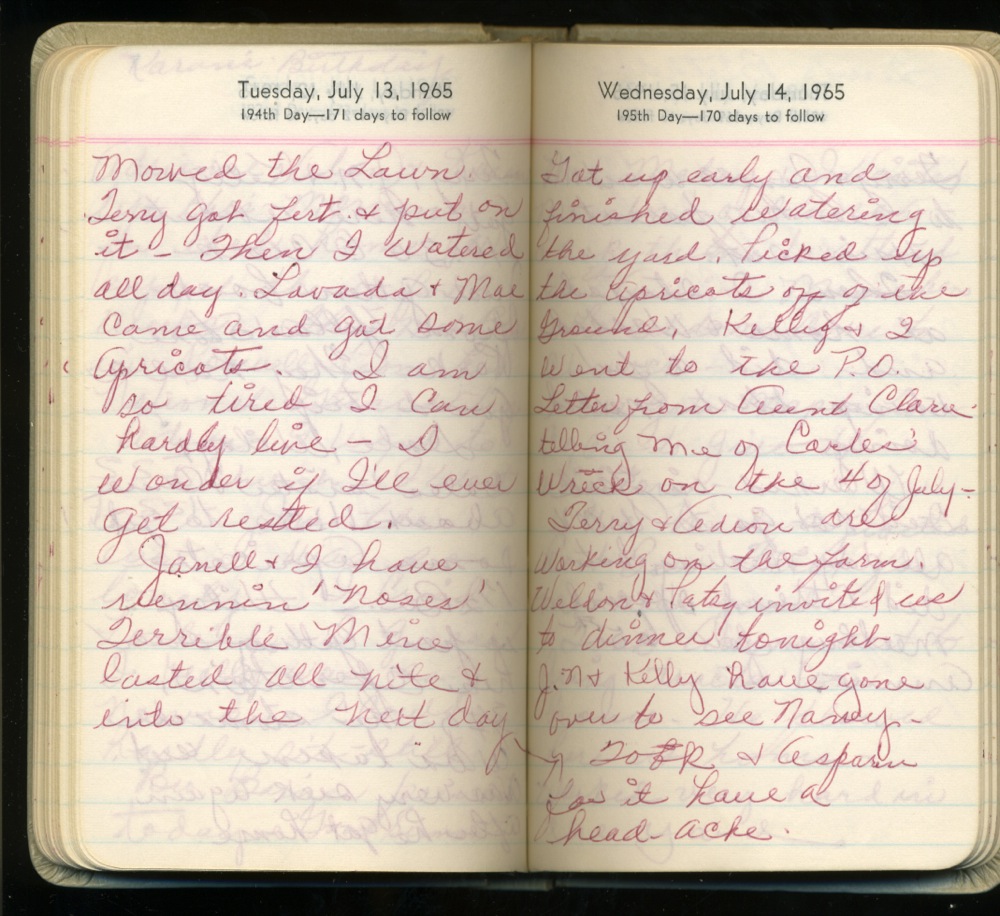 Karen's Birthday
Tuesday, July 13, 1965
194th Day—171 days to follow
Mowed the Lawn.
Terry got fert. & put on
it – Then I watered
all day. Lavada & Mae
came and got some
Apricots. I am
so tired I can
hardly live – I
wonder if I'll ever
get rested.
Janell & I have
runnin' noses'
Terrible Mine
lasted all nite &
into the next day
Wednesday, July 14, 1965
195th Day—170 days to follow
Got up early and
finished watering
the yard. Picked up
the apricots off of the
Ground. Kelly & I
went to the P.O.
Letter from Aunt Clara
telling me of Carles'
Wreck on the 4 of July –
Terry & are
working on the farm.
Weldon & Patsy invited us
to dinner tonight
J.N & Kelly have gone
over to see Nancy –
Took & Asparin
for it have a
head-acke.